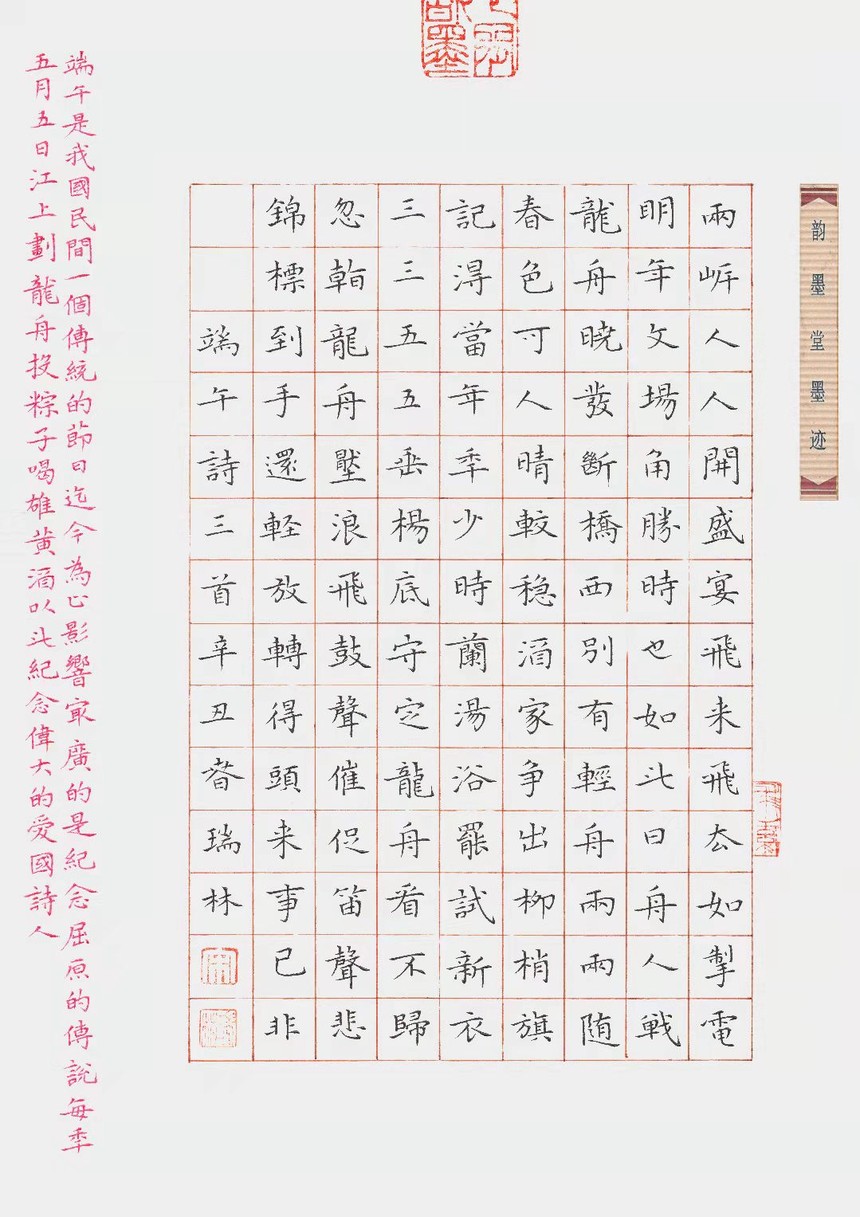 韵墨堂墨迹
兩岸人人開盛宴飛来飛去如掣電
明年文場角勝時也如此日舟人戰
龍舟曉發斷橋西別有輕舟兩兩随
春色可人晴較穏酒家争出柳梢旗
記得當年年少時蘭湯浴罷試新衣
三三五五垂楊底守定龍舟看不歸
忽翰龍舟壓浪飛鼓聲催促笛聲悲
錦標到手還軽放轉得頭来事已非
端午詩三首辛丑春瑞林
端午是我國民間一個傳統的節日迄今為止影響最廣的是紀念屈原的傳説每年
五月五日江上劃龍舟投粽子喝雄黄酒以此紀念偉大的愛國詩人